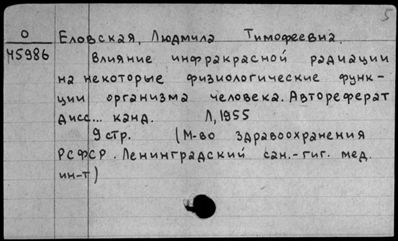 5
О
45986
Еловская, Людмила Тимофеевна.
Влияние инфракрасной радиации
на некоторые физиологические функ-
ции организма человека. Автореферат
дисс... канд. Л, 1955
9 стр. (М-во здравоохранения
РСФСР. Ленинградский сан.-гиг. мед.
ин-т)